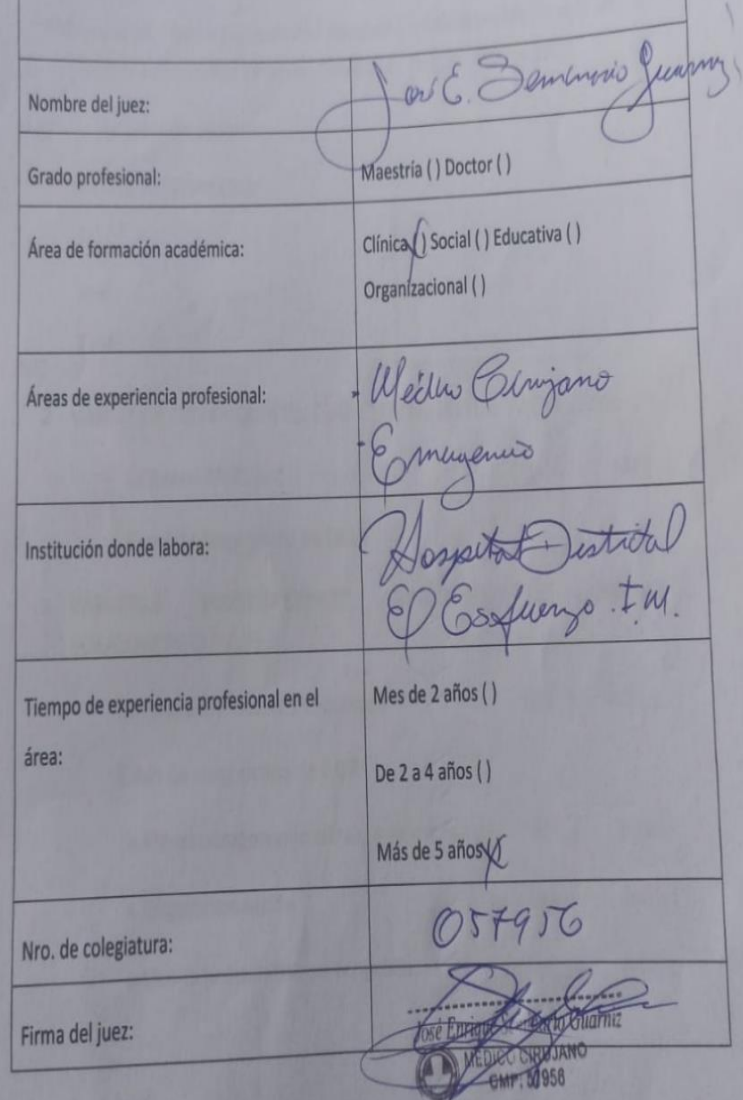 Nombre del juez:
José E. Seminario Guarniz
Grado profesional:
Maestría ( ) Doctor ( )
Área de formación académica:
Clínica ( ) Social ( ) Educativa ( )
Organizacional ( )
Áreas de experiencia profesional:
- Médico Cirujano
- Emergencia
Institución donde labora:
Hospital Distrital
El Esfuerzo. F.M.
Tiempo de experiencia profesional en el
área:
Mes de 2 años ( )
De 2 a 4 años ( )
Más de 5 años (X)
Nro. de colegiatura:
057956
Firma del juez:
José Enrique Guarniz
MEDICO CIRUJANO
CMP: 57956